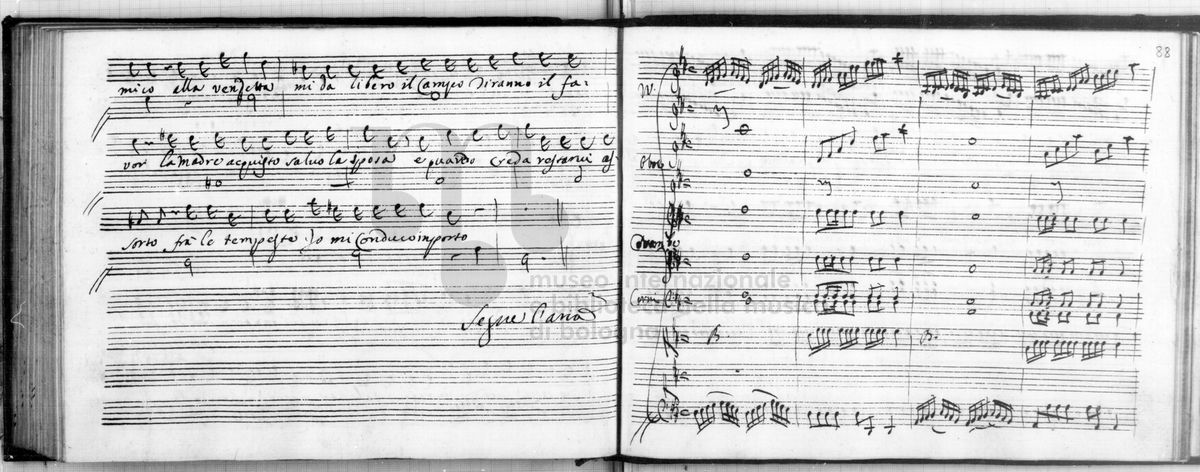 mico alla vendetta mi da libero il Campo Diranno il fa-
vor la madre acquisto salvo la sposa e quando creda restarvi as-
sorto fra le tempeste Io mi Conduco in porto
Segue l'aria
88
Oboe
Corni
museo internazionale
e biblioteca della musica
di bologna